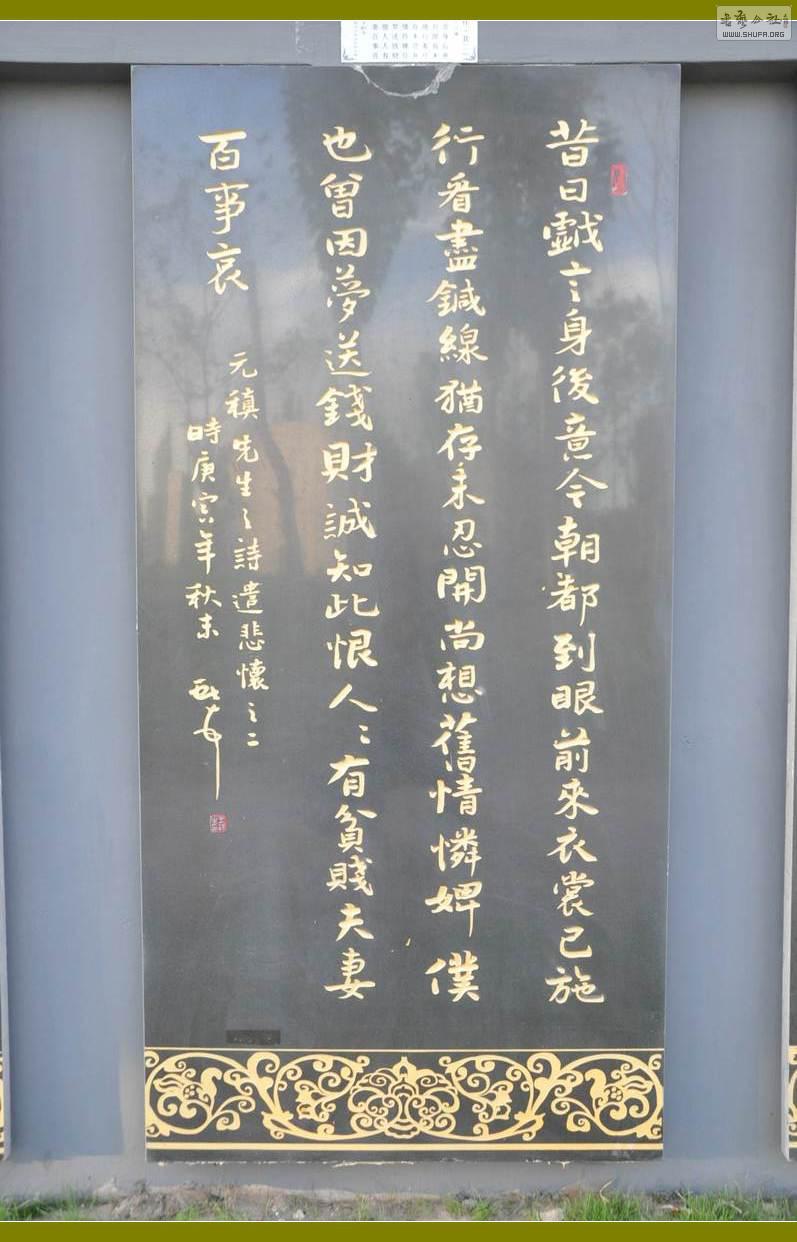 昔日戲言身後意今朝都到眼前來衣裳已施
行看盡鍼線猶存未忍開尚想舊情憐婢僕
也曾因夢送錢財誠知此恨人〻有貧賤夫妻
百事哀
元稹先生之詩遣悲懷之二
時庚寅年秋末
WWW.SHUFA.ORG